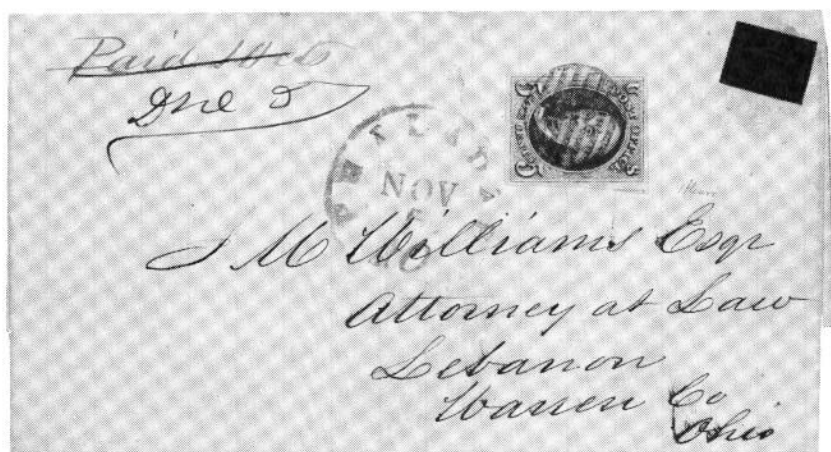 Paid 10 cts
Due 5
NOV
J M Williams Esqr
Attorney at Law
Lebanon
Warren Co
Ohio